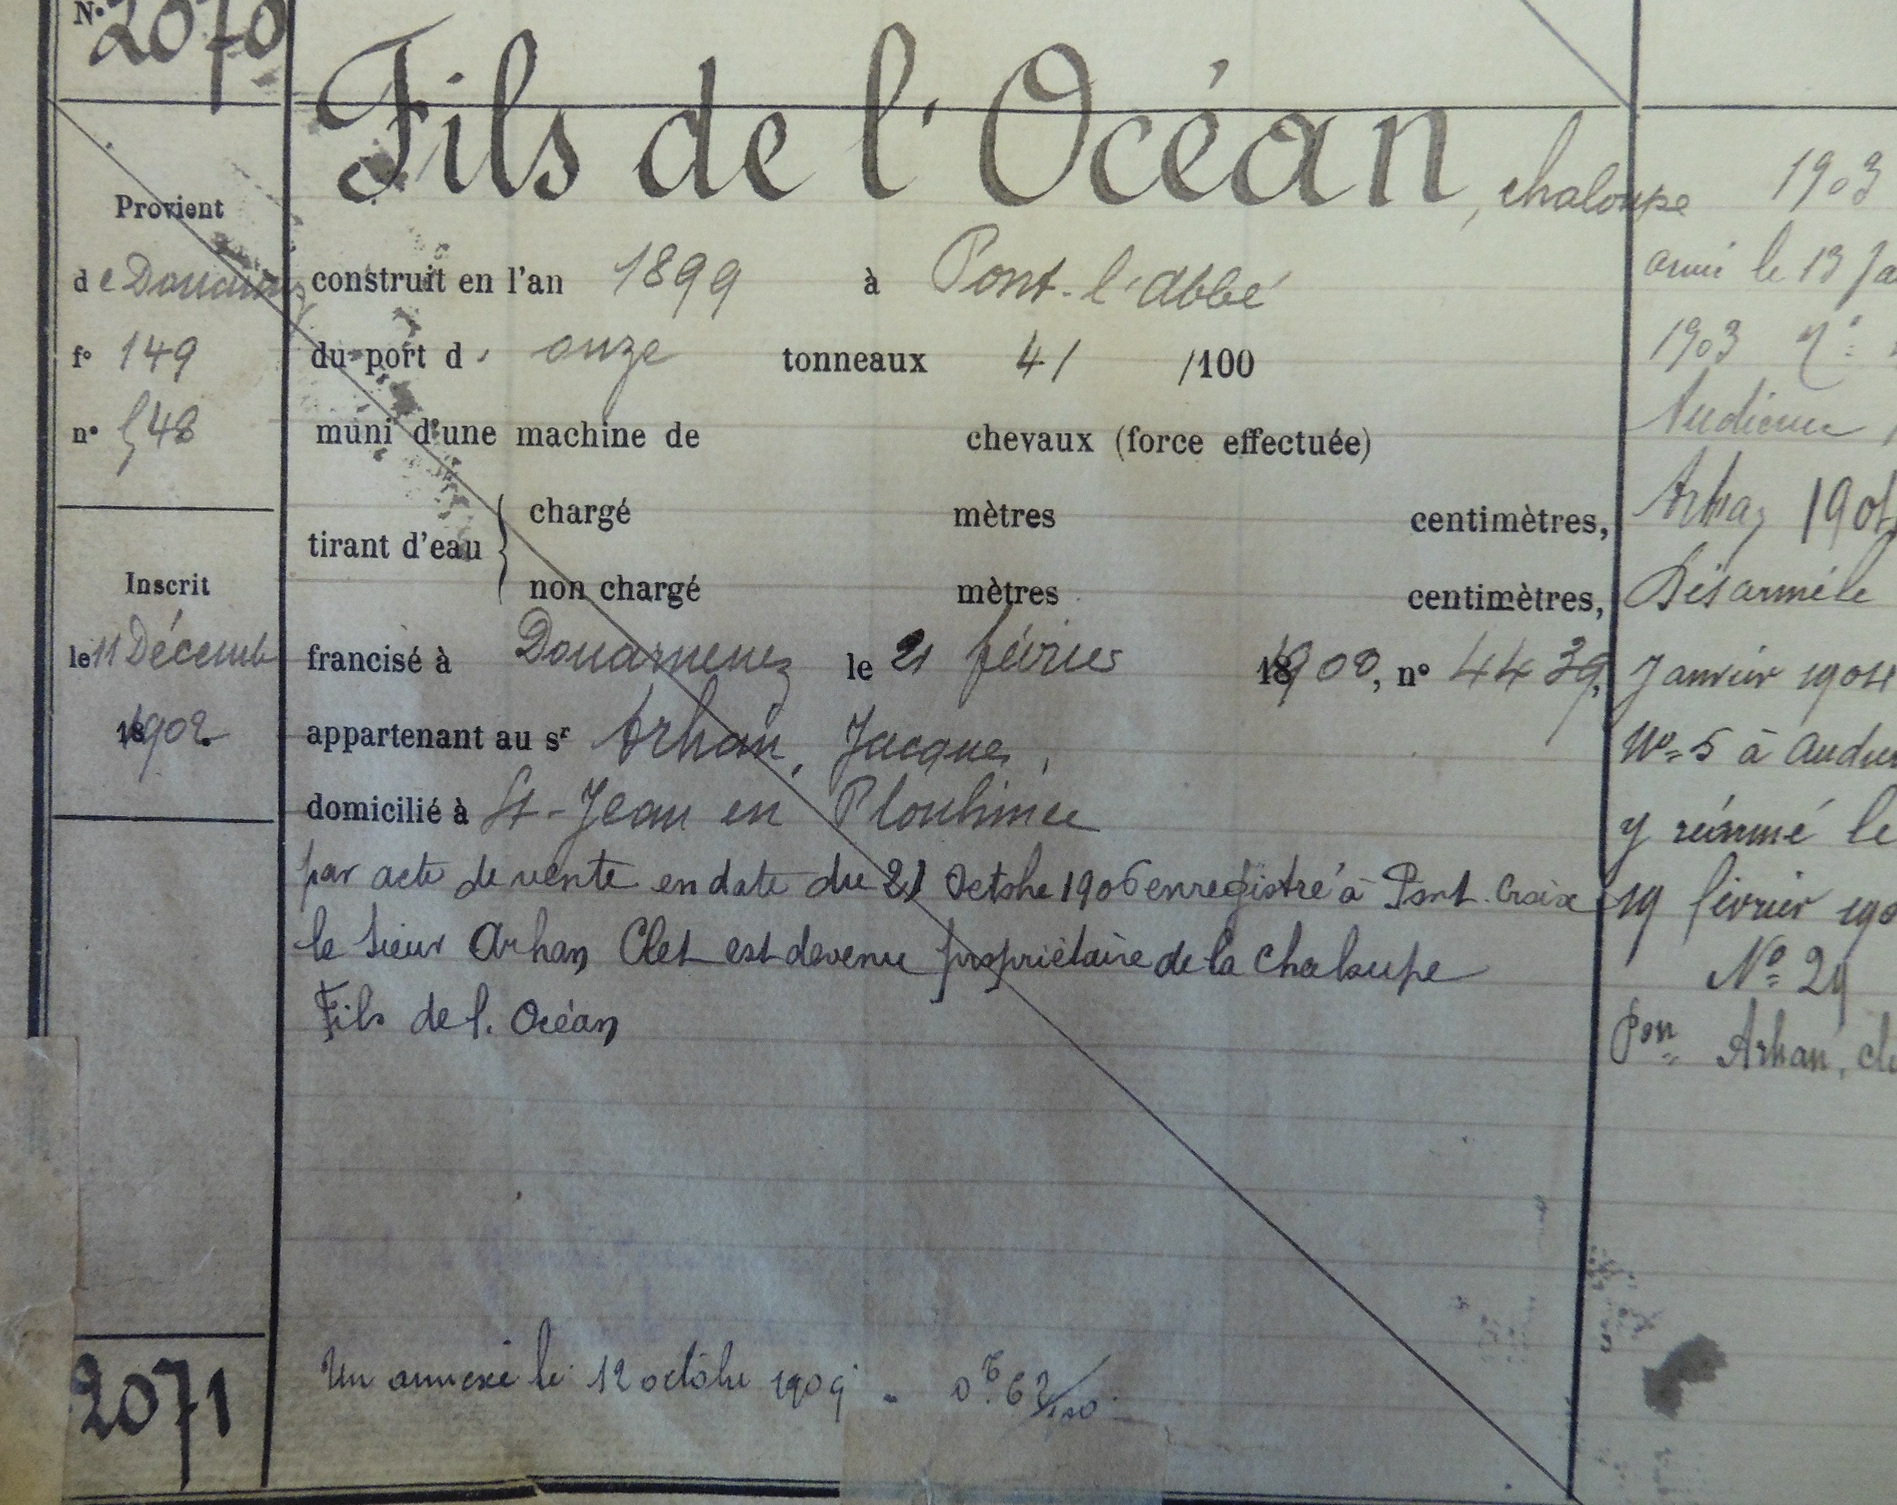 N° 2070
Fils de l'Océan, chaloupe
Provient
de Douarnenez
f° 149
n° 548
construit en l'an 1899 à Pont-l'Abbé
du port d' onze tonneaux 41 /100
muni d'une machine de chevaux (force effectuée)
tirant d'eau { chargé mètres centimètres,
non chargé mètres centimètres,
Inscrit
le 11 Décemb
1902
francisé à Douarnenez le 21 février 1900, n° 4439,
appartenant au sr Arhan, Jacques,
domicilié à St-Jean en Plouhinec
par acte de vente en date du 21 Octobre 1906 enregistré à Pont-Croix
le sieur Arhan Clet est devenu propriétaire de la chaloupe
Fils de l'Océan
2071
Un annexe le 12 octobre 1909 - 0T.62/100.
1903
armé le 13 Ja
1903 N°
Audierne
1904
Désarmé le
Janvier 1904
N° 5 à Audier
y réarmé le
19 février 190
N° 29
Pon Arhan, cle